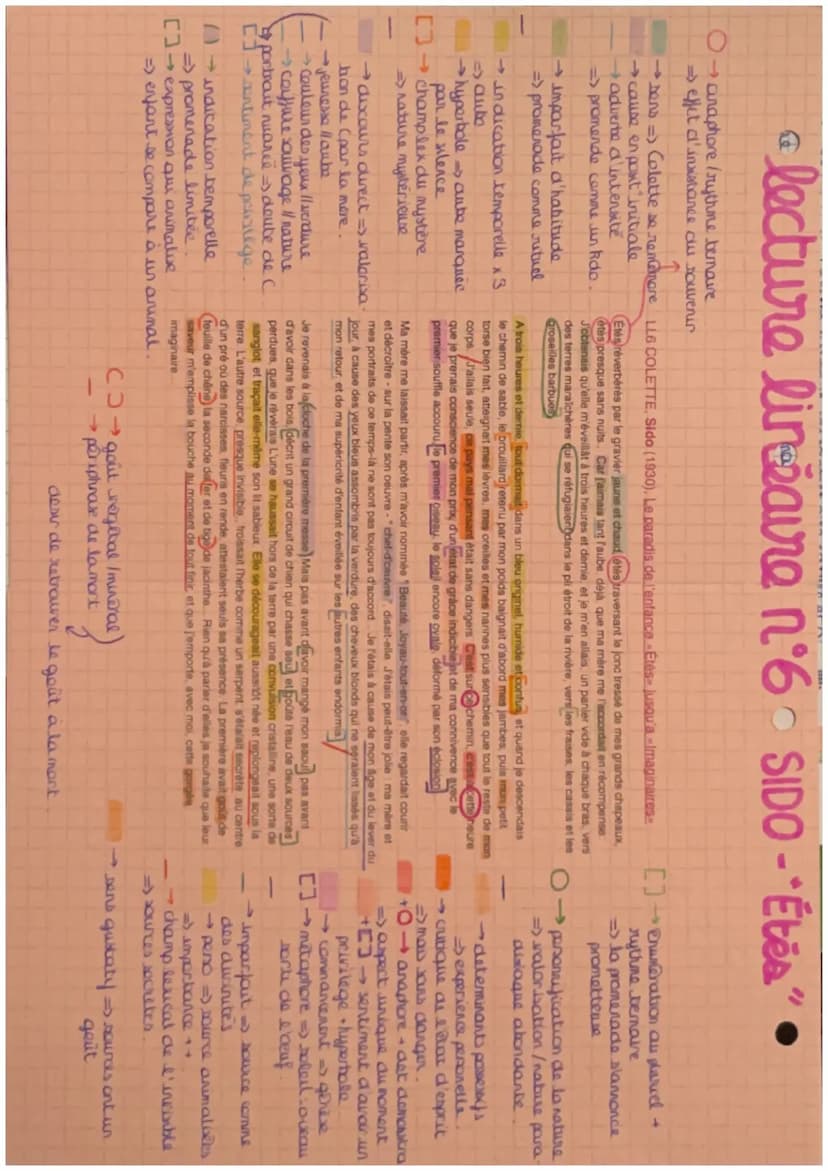 lecture linéaire n°6 • SIDO - "Étés" •
○ → anaphore / rythme ternaire
=> effet d'insistance du souvenir
→ sens => Colette se remémore
→ cause en posit° initiale
→ adverbe d'intensité
=> promenade comme un kdo.
→ imparfait d'habitude
=> promenade comme rituel
→ indication temporelle x 3
=> aube
→ hyperbole => aube marquée
par le silence
[] → champ lex du mystère
=> nature mystérieuse
→ discours direct => valorisa-
tion de C par la mère.
→ jeunesse // aube
→ couleur des yeux // verdure
→ coiffure sauvage // nature
↳ portrait nuancé => doute de C
[] → sentiment de privilège
() → indication temporelle
=> promenade limitée.
[] → expression qui animalise
=> enfant se compare à un animal.
LL6 COLETTE, Sido (1930), Le paradis de l'enfance «Étés» jusqu'à «Imaginaires»
Étés réverbérés par le gravier jaune et chaud, étés traversant le jonc tressé de mes grands chapeaux,
étés presque sans nuits... Car j'aimais tant l'aube, déjà, que ma mère me l'accordait en récompense.
J'obtenais qu'elle m'éveillât à trois heures et demie, et je m'en allais, un panier vide à chaque bras, vers
des terres maraîchères qui se réfugiaient dans le pli étroit de la rivière, vers les fraises, les cassis et les
groseilles barbues.
A trois heures et demie, tout dormait dans un bleu originel, humide et confus, et quand je descendais
le chemin de sable, le brouillard retenu par mon poids baignait d'abord mes jambes, puis mon petit
torse bien fait, atteignait mes lèvres, mes oreilles et mes narines plus sensibles que tout le reste de mon
corps. J'allais seule, ce pays mal pensant était sans dangers. C'est sur ce chemin, c'est à cette heure
que je prenais conscience de mon prix, d'un état de grâce indicible et de ma connivence avec le
premier souffle accouru, le premier oiseau, le soleil encore ovale, déformé par son éclosion.
Ma mère me laissait partir, après m'avoir nommée "Beauté, Joyau-tout-en-or", elle regardait courir
et décroître - sur la pente son oeuvre - "chef-d'oeuvre", disait-elle. J'étais peut-être jolie ; ma mère et
mes portraits de ce temps-là ne sont pas toujours d'accord... Je l'étais à cause de mon âge et du lever du
jour, à cause des yeux bleus assombris par la verdure, des cheveux blonds qui ne seraient lissés qu'à
mon retour, et de ma supériorité d'enfant éveillée sur les autres enfants endormis.
Je revenais à la cloche de la première messe. Mais pas avant d'avoir mangé mon saoul, pas avant
d'avoir dans les bois, décrit un grand circuit de chien qui chasse seul, et goûté l'eau de deux sources
perdues, que je révérais. L'une se haussait hors de la terre par une convulsion cristalline, une sorte de
sanglot, et traçait elle-même son lit sableux. Elle se décourageait aussitôt née et replongeait sous la
terre. L'autre source, presque invisible, froissait l'herbe comme un serpent, s'étalait secrète au centre
d'un pré où des narcisses, fleuris en ronde, attestaient seuls sa présence. La première avait goût de
feuille de chêne, la seconde de fer et de tige de jacinthe... Rien qu'à parler d'elles je souhaite que leur
saveur m'emplisse la bouche au moment de tout finir, et que j'emporte, avec moi, cette gorgée
imaginaire.
[] → énumération au pluriel +
rythme ternaire
=> la promenade s'annonce
prometteuse
○ → personnification de la nature
=> valorisation / nature para-
disiaque abondante
→ déterminants possessifs
=> expérience personnelle.
→ critique de l'état d'esprit
=> mais sans danger.
+ ○ → anaphore + det démonstra
=> aspect unique du moment
+ [] → sentiment d'avoir un
privilège + hyperbole
→ commencement => génèse
[] → métaphore => soleil = oiseau
sorti de l'œuf.
→ imparfait => source comme
des divinités
→ perso => source animalisées
=> importance ++
→ champ lexical de l'invisible
=> sources secrètes.
() → goût végétal / minéral
→ périphrase de la mort
désir de retrouver le goût à la mort
→ sens gustatif => sources ont un
goût